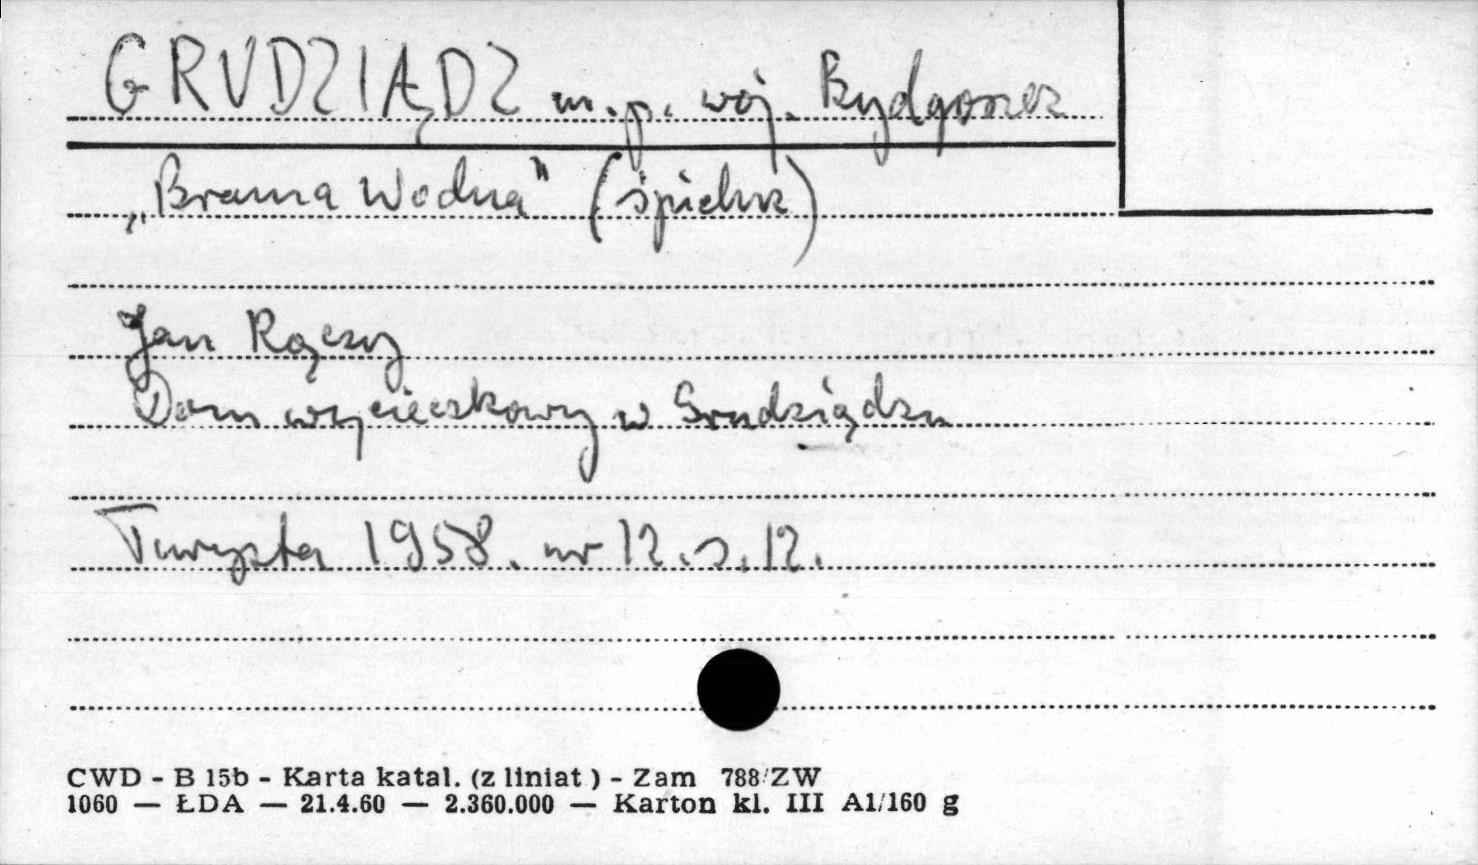 GRUDZIĄDZ m.p. woj. Bydgoszcz
„Brama Wodna" (spichrz)
Jan Rączy
Dom wycieczkowy w Grudziądzu
Turysta 1958. nr 12. s. 12.
CWD - B 15b - Karta katal. (z liniat) - Zam 788/ZW
1060 — ŁDA — 21.4.60 — 2.360.000 — Karton kl. III A1/160 g